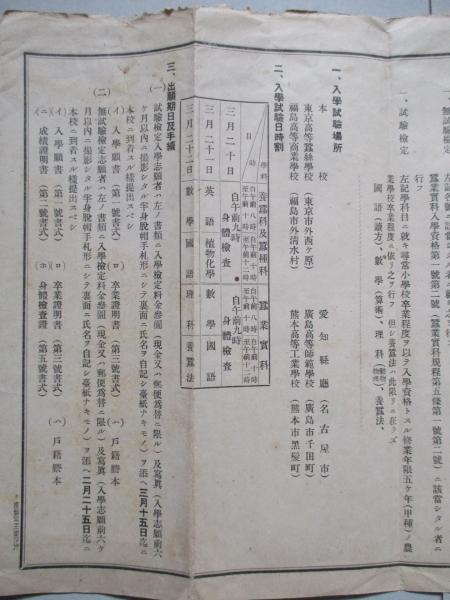 蠶業實科入學資格第一號第二號(蠶業實科規程第五條第一號第二號)ニ該當シタル者ニ
行フ
一、試驗檢定
左記學科目ニ就キ尋常小學校卒業程度ヲ以テ入學資格トスル修業年限五ケ年(甲種)ノ農
業學校卒業程度ニ依リ之ヲ行フ 但シ養蠶法ハ此限リニ在ラズ
國語(讀方)、數學(算術)、理科、養蠶法、
一、入學試驗場所
本校
東京高等蠶絲學校(東京市外西ケ原)
福島高等商業學校(福島市外清水村)
愛知縣廳(名古屋市)
廣島高等師範學校(廣島市千田町)
熊本高等工業學校(熊本市黑髮町)
二、入學試驗日時割
學科
時
日
養蠶科及蠶種科
蠶業實科
自午前八時
至午前十時
自午前十時
至午前十二時
自午前八時
至午前十時
自午前十時
至午前十二時
三月二十日
自午前九時
身體檢查
自午前九時
身體檢查
三月二十一日
英語
植物化學
數學
國語
三月二十二日
數學
國語
理科
養蠶法
三、出願期日及手續
(一)試驗檢定入學志願者ハ左ノ書類ニ入學檢定料金參圓(現金又ハ郵便爲替ニ限ル)及寫眞(入學志願前六
ケ月以內ニ撮影シタル半身脫帽手札形ニシテ裏面ニ氏名ヲ自記シ臺紙ナキモノ)ヲ添ヘ三月十五日迄ニ
本校ニ到着スル樣提出スベシ
(イ)入學願書(第一號書式)
(ロ)卒業證明書(第三號書式)
(ハ)戶籍謄本
(二)無試驗檢定志願者ハ左ノ書類ニ入學檢定料金參圓(現金又ハ郵便爲替ニ限ル)及寫眞(入學志願前六ケ
月以內ニ撮影シタル半身脫帽手札形ニシテ裏面ニ氏名ヲ自記シ臺紙ナキモノ)ヲ添ヘ二月二十五日迄ニ
本校ニ到着スル樣提出スベシ
(イ)入學願書(第二號書式)
(ロ)卒業證明書(第三號書式)
(ハ)戶籍謄本
(ニ)成績證明書(第四號書式)
(ホ)身體檢查證(第五號書式)